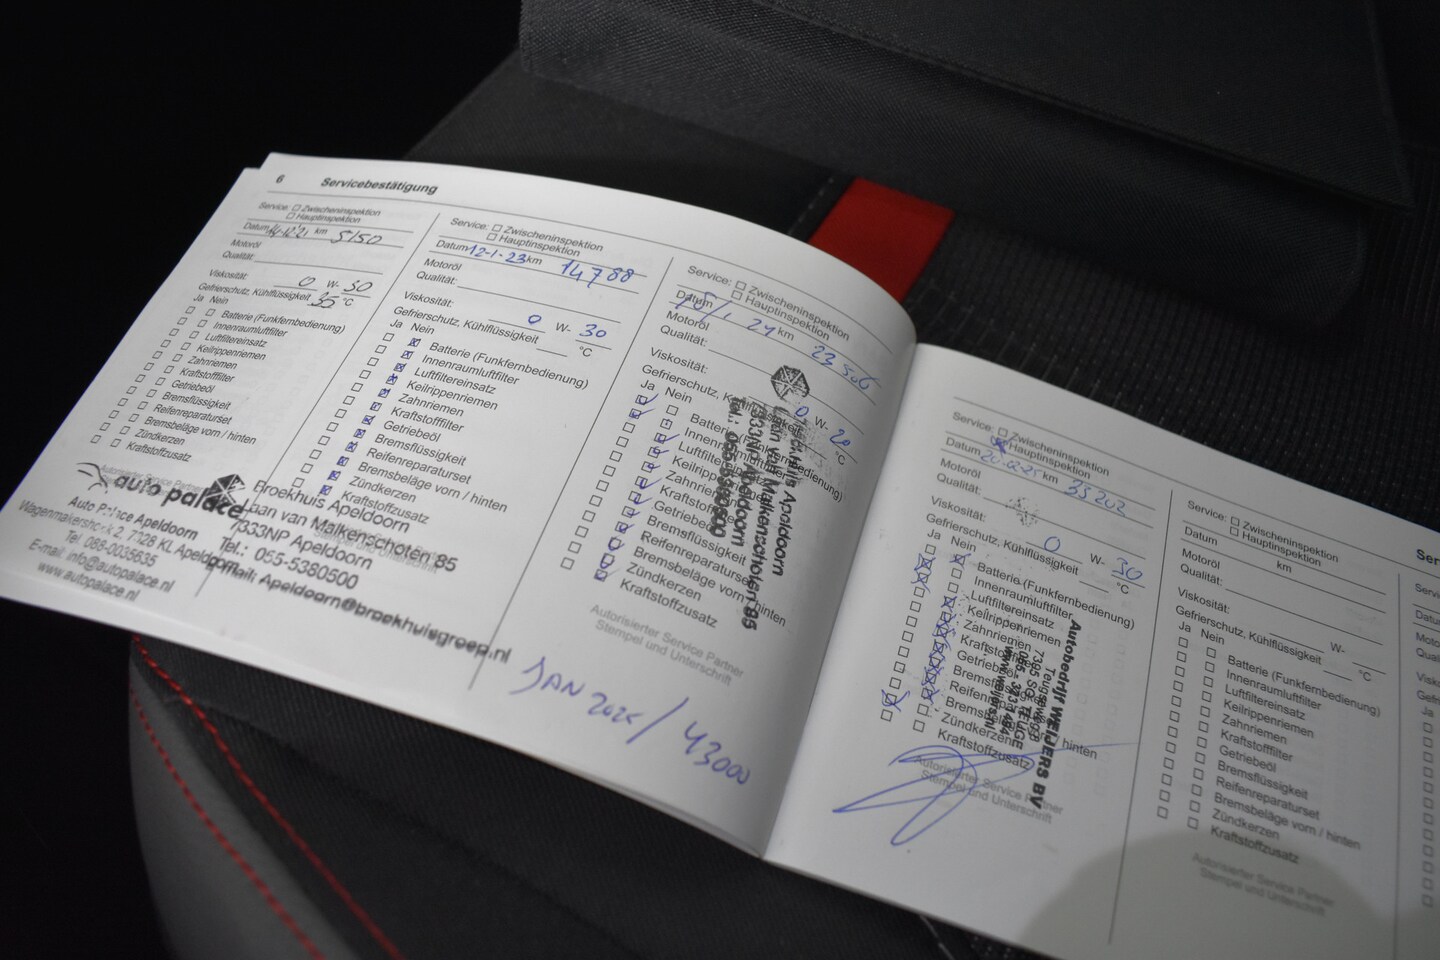 6 Servicebestätigung
Service: Zwischeninspektion
Hauptinspektion
Datum 14-12-'21 km 5150
Motoröl
Qualität:
Viskosität: 0 W- 30
Gefrierschutz, Kühlflüssigkeit 35 °C
Ja Nein
Batterie (Funkfernbedienung)
Innenraumluftfilter
Luftfiltereinsatz
Keilrippenriemen
Zahnriemen
Kraftstofffilter
Getriebeöl
Bremsflüssigkeit
Reifenreparaturset
Bremsbeläge vorn / hinten
Zündkerzen
Kraftstoffzusatz
Autorisierter Service
auto palace
Auto Palace Apeldoorn
Wagenmakershoek 2, 7328 KL Apeldoorn
Tel 088-0035635
E-mail: info@autopalace.nl
www.autopalace.nl
Service: Zwischeninspektion
Hauptinspektion
Datum 12-1-23 km 14788
Motoröl
Qualität:
Viskosität: 0 W- 30
Gefrierschutz, Kühlflüssigkeit °C
Ja Nein
Batterie (Funkfernbedienung)
Innenraumluftfilter
Luftfiltereinsatz
Keilrippenriemen
Zahnriemen
Kraftstofffilter
Getriebeöl
Bremsflüssigkeit
Reifenreparaturset
Bremsbeläge vorn / hinten
Zündkerzen
Kraftstoffzusatz
Broekhuis Apeldoorn
Laan van Malkenschoten 85
7333NP Apeldoorn
Tel.: 055-5380500
Email: Apeldoorn@broekhuisgroep.nl
Service: Zwischeninspektion
Hauptinspektion
Datum 24 km 23506
Motoröl
Qualität:
Viskosität: 0 W- 20
Gefrierschutz, Kühlflüssigkeit °C
Ja Nein
Batterie (Funkfernbedienung)
Innenraumluftfilter
Luftfiltereinsatz
Keilrippenriemen
Zahnriemen
Kraftstofffilter
Getriebeöl
Bremsflüssigkeit
Reifenreparaturset
Bremsbeläge vorn / hinten
Zündkerzen
Kraftstoffzusatz
Autorisierter Service Partner
Stempel und Unterschrift
Broekhuis Apeldoorn
Laan van Malkenschoten 85
7333NP Apeldoorn
Tel.: 055-5380500
JAN 2026 / 43000
Service: Zwischeninspektion
Hauptinspektion
Datum 20-02-25 km 35202
Motoröl
Qualität:
Viskosität: 0 W- 30
Gefrierschutz, Kühlflüssigkeit °C
Ja Nein
Batterie (Funkfernbedienung)
Innenraumluftfilter
Luftfiltereinsatz
Keilrippenriemen
Zahnriemen
Kraftstofffilter
Getriebeöl
Bremsflüssigkeit
Reifenreparaturset
Bremsbeläge vorn / hinten
Zündkerzen
Kraftstoffzusatz
Autorisierter Service Partner
Stempel und Unterschrift
Autobedrijf WEIJERS BV
Teugseweg
7395 SG TEUGE
055 - 323 1494
www.weijers.nl
Service: Zwischeninspektion
Hauptinspektion
Datum km
Motoröl
Qualität:
Viskosität: W-
Gefrierschutz, Kühlflüssigkeit °C
Ja Nein
Batterie (Funkfernbedienung)
Innenraumluftfilter
Luftfiltereinsatz
Keilrippenriemen
Zahnriemen
Kraftstofffilter
Getriebeöl
Bremsflüssigkeit
Reifenreparaturset
Bremsbeläge vorn / hinten
Zündkerzen
Kraftstoffzusatz
Autorisierter Service Partner
Stempel und Unterschrift
Ja